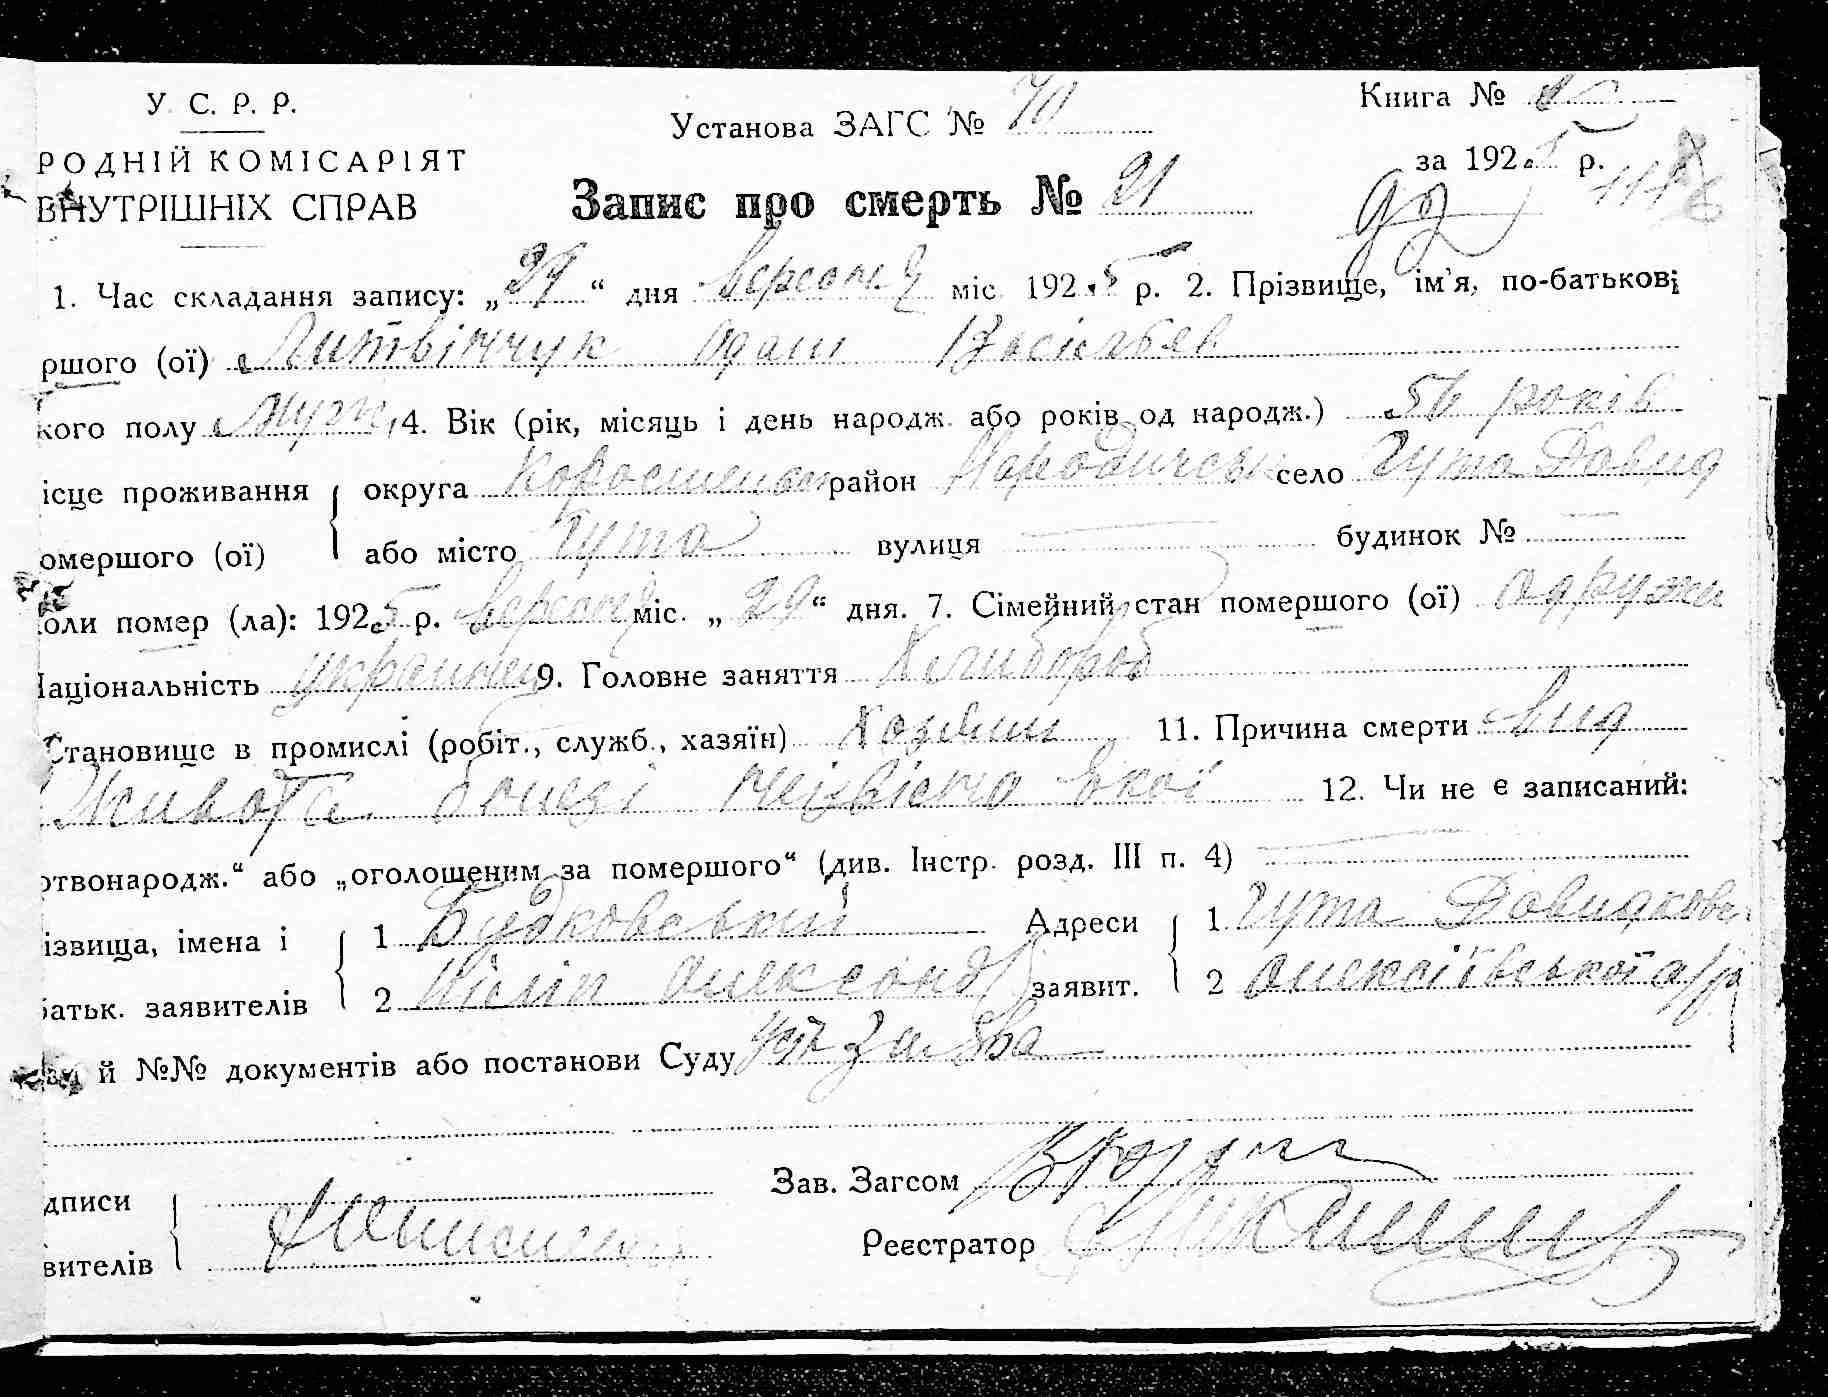 У. С. Р. Р.
РОДНІЙ КОМІСАРІЯТ
ВНУТРІШНІХ СПРАВ
Установа ЗАГС № 70
Книга №
за 1925 р.
Запис про смерть № 21
1. Час складання запису: „29“ дня Версеня міс. 1925 р. 2. Прізвище, ім'я, по-батькові
ршого (ої) Литвінчук Адам Васильев
кого полу Муж. 4. Вік (рік, місяць і день народж. або років од народж.) 56 років
ісце проживання округа Коростенськ район Народичськ село Гута Давид
омершого (ої) або місто Гута вулиця — будинок № —
оли помер (ла): 1925 р. Версеня міс. „29“ дня. 7. Сімейний стан помершого (ої) одруже
Національність українец 9. Головне заняття Хлибороб
Становище в промислі (робіт., служб., хазяїн) Хазяин 11. Причина смерти Вид
Живота болезі неізвісно якої 12. Чи не є записаний:
ртвонародж.“ або „оголошеним за помершого“ (див. Інстр. розд. III п. 4) —
ізвища, імена і 1 Будковський Адреси 1 Гута Давидковс
батьк. заявителів 2 Олександ заявит. 2 Олексіївської с/р
й №№ документів або постанови Суду Усн заява
дписи Зав. Загсом
вителів Реєстратор